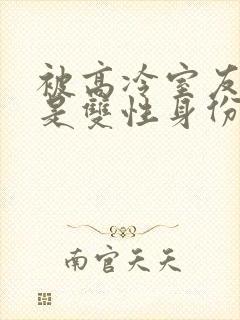 被高冷室友
是雙性身份
南官天天